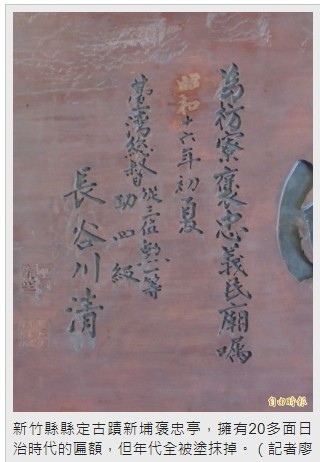 為枋寮褒忠義民廟囑
昭和十六年初夏
臺灣總督從三位勲一等
功四級
長谷川清
自由時報
新竹縣縣定古蹟新埔褒忠亭，擁有20多面日
治時代的匾額，但年代全被塗抹掉。（記者廖